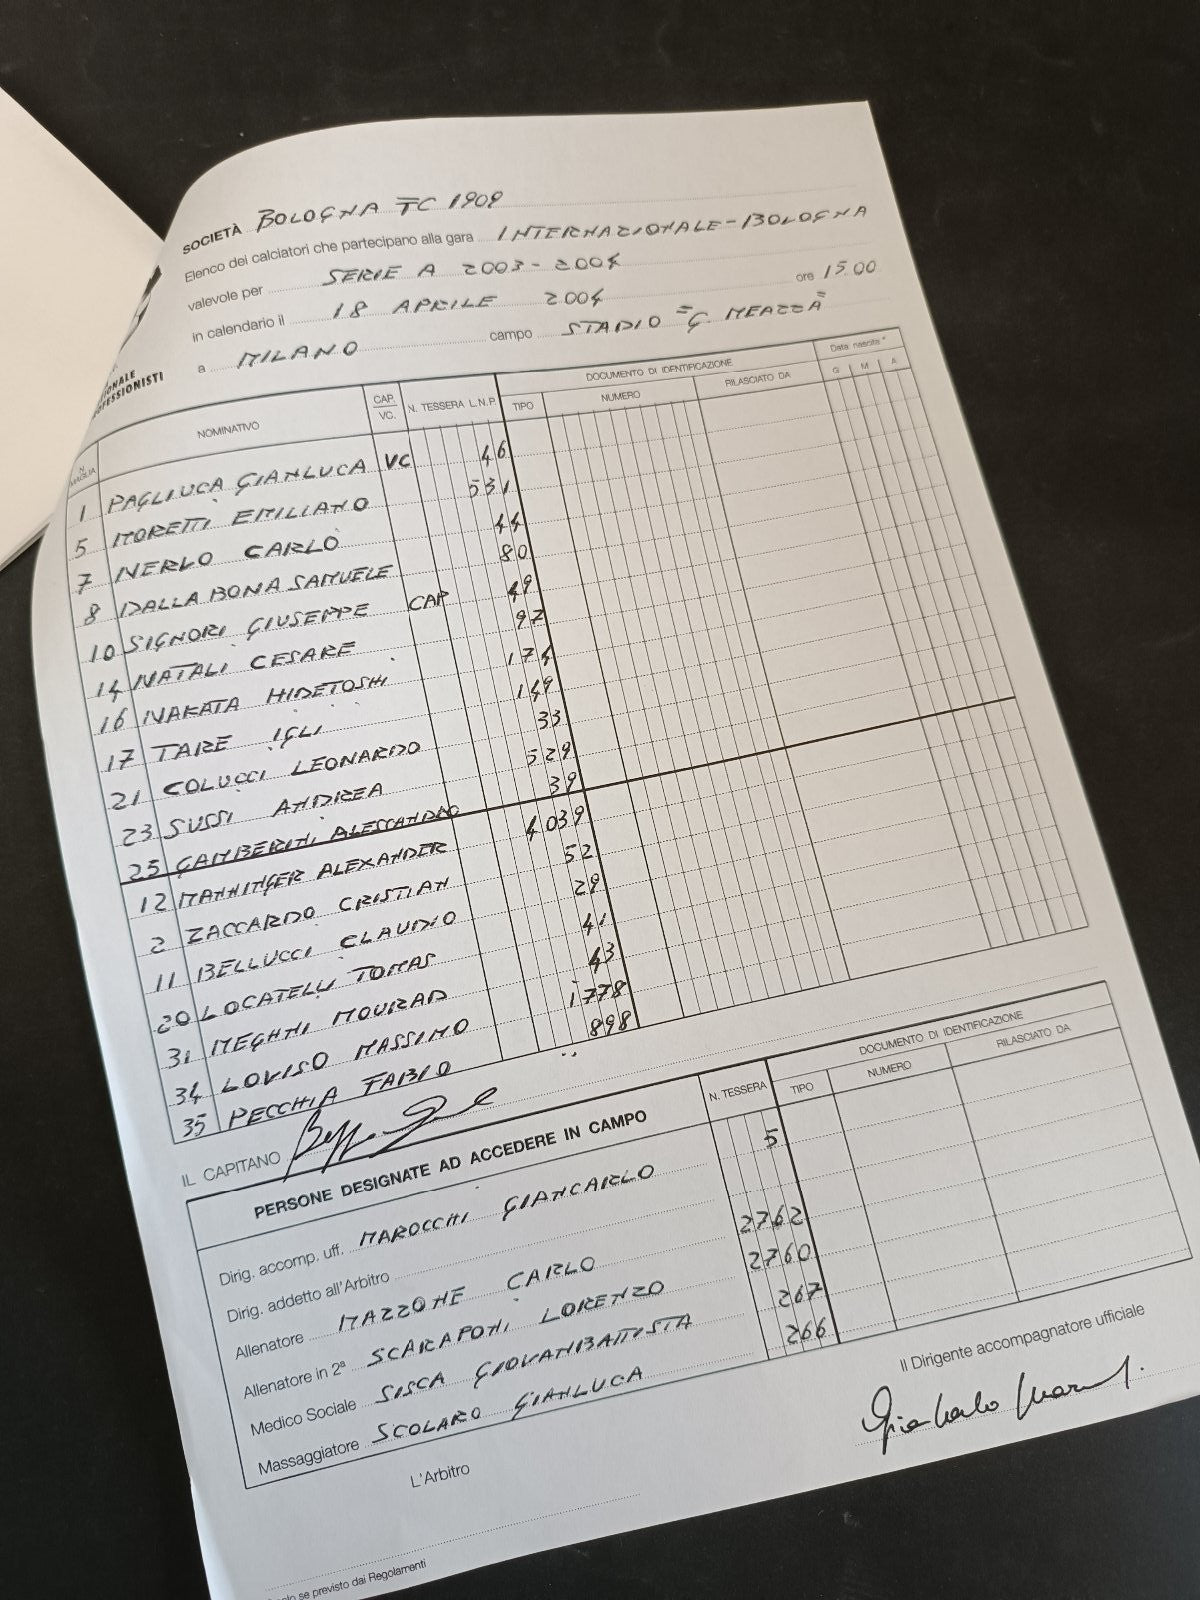 SOCIETÀ BOLOGNA FC 1909
Elenco dei calciatori che partecipano alla gara INTERNAZIONALE-BOLOGNA
valevole per SERIE A 2003-2004
in calendario il 18 APRILE 2004 ore 15.00
a MILANO campo STADIO "G. MEAZZA"
ONALE
OFESSIONISTI
N. MAGLIA NOMINATIVO CAP. VC. N. TESSERA L.N.P. DOCUMENTO DI IDENTIFICAZIONE Data nascita*
TIPO NUMERO RILASCIATO DA G M A
1 PAGLIUCA GIANLUCA VC 46
5 MORETTI EMILIANO 531
7 NERVO CARLO 44
8 DALLA BONA SAMUELE 80
10 SIGNORI GIUSEPPE CAP 49
14 NATALI CESARE 97
16 NAKATA HIDETOSHI 174
17 TARE IGLI 149
21 COLUCCI LEONARDO 33
23 SUSSI ANDREA 529
25 GAMBERINI ALESSANDRO 39
12 MANNINGER ALEXANDER 4039
2 ZACCARDO CRISTIAN 52
11 BELLUCCI CLAUDIO 29
20 LOCATELLI TOMAS 41
31 MEGHNI MOURAD 43
34 LOVISO MASSIMO 1778
35 PECCHIA FABIO 898
IL CAPITANO
PERSONE DESIGNATE AD ACCEDERE IN CAMPO N. TESSERA DOCUMENTO DI IDENTIFICAZIONE
TIPO NUMERO RILASCIATO DA
Dirig. accomp. uff. MAROCCHI GIANCARLO 5
Dirig. addetto all'Arbitro
Allenatore MAZZONE CARLO 2762
Allenatore in 2ª SCARAPONI LORENZO 2760
Medico Sociale SISCA GIOVANBATTISTA 267
Massaggiatore SCOLARO GIANLUCA 266
Il Dirigente accompagnatore ufficiale
L'Arbitro
solo se previsto dai Regolamenti